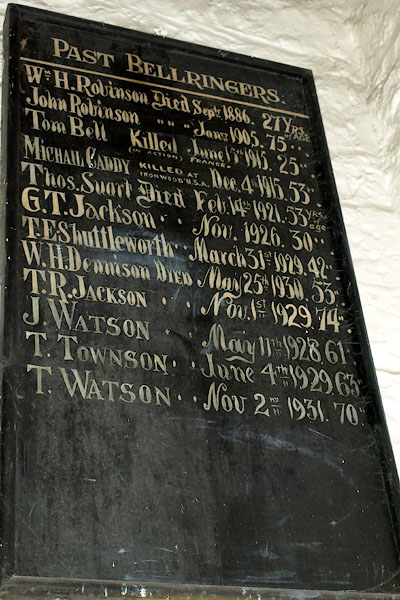 PAST BELLRINGERS.
Wm H. Robinson Died Sept. 1886. 27 Yrs
John Robinson " " Janʸ 1905. 75 "
Tom Bell Killed (IN ACTION) FRANCE June 1915. 25 "
MICHAIL CADDY KILLED AT IRONWOOD U.S.A. Dec. 4th 1915. 53 "
Thos. Suart Died Feb. 14th 1921. 53 yrs of age
G.T. Jackson " " Nov. 1926. 30 "
T.F. Shuttleworth " " March 31st 1929. 42 "
W.H. Dennison DIED May 25th 1930. 53 "
T.R. JACKSON " " Nov. 1st 1929. 74 "
J. WATSON " " May 11th 1928. 61 "
T. TOWNSON " " June 4th 1929. 63 "
T. WATSON " " Nov 2nd 1931. 70 "